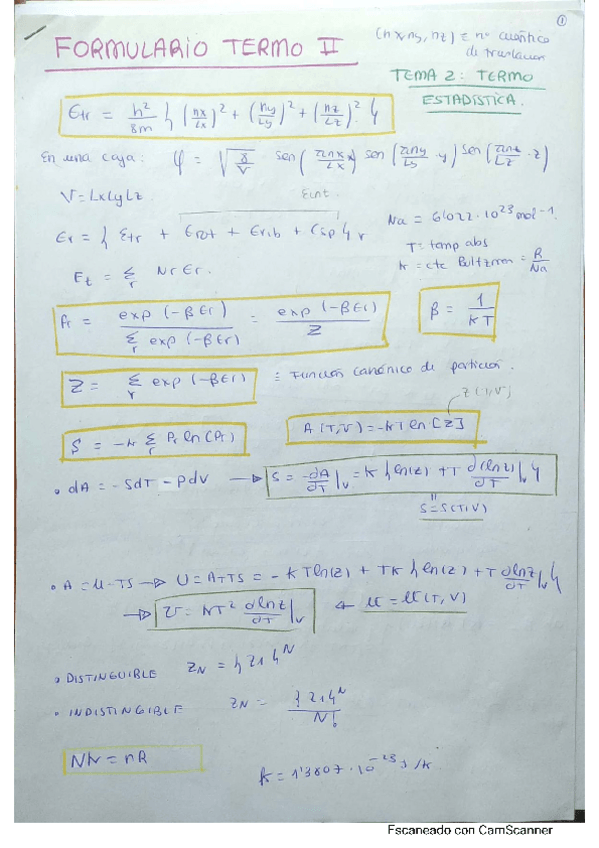 ①
FORMULARIO TERMO II
(nx, ny, nz) ≡ nº cuántico
de traslacion
TEMA 2: TERMO
ESTADÍSTICA.
Etr = h²/8m { (nx/Lx)² + (ny/Ly)² + (nz/Lz)² }
En una caja: φ = √(8/V) sen(πnx/Lx x) sen(πny/Ly · y) sen(πnz/Lz · z)
V = LxLyLz
Eint
Er = { Etr + Erot + Evib + Esp }r
Na = 6'022·10²³ mol⁻¹.
T = temp abs
k = cte Boltzman = R/Na
Et = Σr Nr Er.
Pr = exp(-βEr) / Σr exp(-βEr) = exp(-βEr) / Z
β = 1/KT
Z = Σr exp(-βEr) ≡ Función canónico de partición.
Z(T,V)
S = -k Σr Pr ln(Pr)
A(T,V) = -kT ln[Z]
• dA = -SdT - pdV → S = -dA/∂T |v = k { ln(z) + T ∂(lnz)/∂T |v }
S = S(T,V)
• A = U-TS → U = A+TS = -kTln(z) + TK { ln(z) + T ∂lnz/∂T |v }
→ U = KT² ∂lnz/∂T |v ← U = U(T,V)
• DISTINGUIBLE ZN = {Z1}ᴺ
• INDISTINGIBLE ZN = {Z1}ᴺ / N!
Nk = nR
k = 1'3807·10⁻²³ J/K
Escaneado con CamScanner